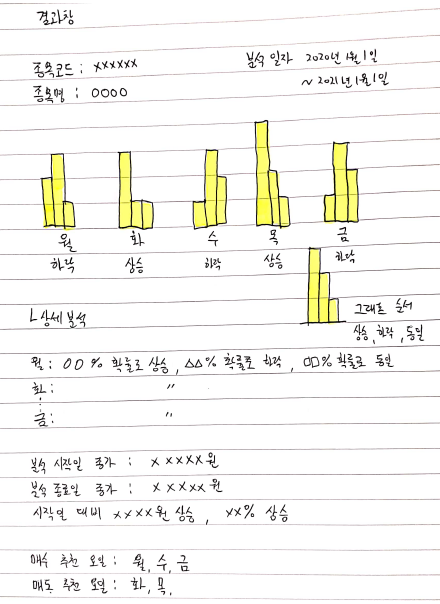 결과창
종목코드 : xxxxxx
분석 일자 2020년 1월 1일
종목명 : 0000
~ 2021년 1월 1일
월 화 수 목 금
하락 상승 하락 상승 하락
그래프 순서
상승, 하락, 동일
ㄴ상세분석
월 : 00% 확률로 상승, △△% 확률로 하락, □□% 확률로 동일
화 : "
⋮
금 : "
분석 시작일 종가 : xxxxx원
분석 종료일 종가 : xxxxx원
시작일 대비 xxxx원 상승, xx% 상승
매수 추천 요일 : 월, 수, 금
매도 추천 요일 : 화, 목,